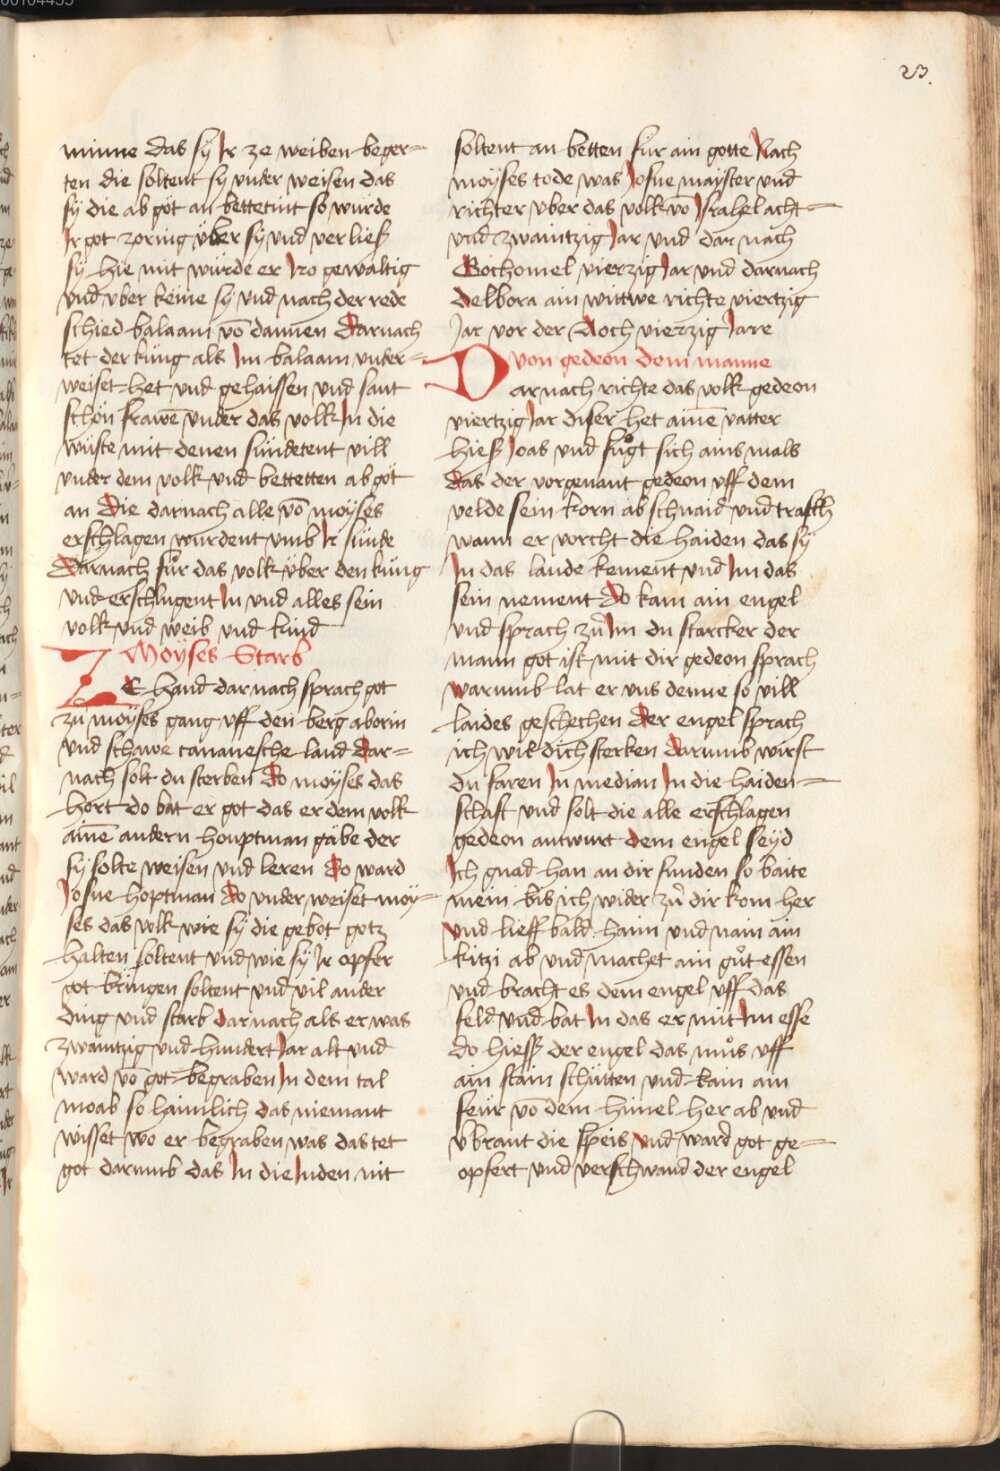 23.
minne das sÿ Jr ze weiben beger=
ten die soltent sy vnder weisen das
sÿ die ab göt an bettetint so wurde
Jr got zornig über sÿ und verließ
sÿ hie mit würde er Jro gewaltig
vnd vber keme sy und nach der rede
schied balaam vō dannen darnach
tet der küng als Jm balaam vnder=
weiset het vnd gehaissen vnd sant
schön frawē vnder das volk Jn die
wüste mit denen sündetent vill
vnder dem volk vnd bettetten ab göt
an die darnach alle vō moÿses
erschlagen wurdent vmb Jr sünde
Darnach fůr das volk über den küng
vnd erschlugent Jn vnd alles sein
volk vnd weib vnd kind
Moÿses Starb
ZE hand dar nach sprach got
zů moÿses gang vff den berg aborin
vnd schawe cananesche land dar=
nach solt du sterben do moÿses das
hort do bat er got das er dem volk
ainē andern houptman gäbe der
sÿ solte weisen vnd leren do ward
Josue hoptman do vnder weiset moÿ=
ses das volk wie sÿ die gebot gotz
halten soltent vnd wie sÿ Jr opfer
got bringen soltent vnd vil ander
ding vnd starb darnach als er was
zwaintzig vnd hundert Jar alt vnd
ward vō got begraben Jn dem tal
moab so haimlich das niemant
wisset wo er begraben was das tet
got darumb das Jn die Juden nit
soltent an betten für ain gotte Nach
moÿses tode was Josue maÿster vnd
richter vber das volk vō Jsrahel acht=
vnd zwaintzig Jar vnd dar nach
Gothomel vierzig Jar vnd darnach
delbora ain wittwe richte viertzig
Jar vor der Aoch vierzig Jare
von gedeon dem manne
Darnach richte das volk gedeon
viertzig Jar diser het ainē vatter
hieß Joas vnd fůgt sich ains mals
das der vorgenant gedeon vff dem
velde sein korn ab schnaid vnd trasch
wann er vorcht die haiden das sÿ
Jn das lande kement vnd Jm das
sein nement do kam ain engel
vnd sprach zů Jm du starcker der
mann got ist mit dir gedeon sprach
warumb lat er vns denne so vill
laides geschechen der engel sprach
ich wil dich sterken darumb wirst
du faren Jn median Jn die haiden=
schaft vnd solt die alle erschlagen
gedeon antwurt dem engel seÿd
Jch gnad han an dir funden so baite
mein bis ich wider zů dir kom her
vnd lieff bald haim vnd nam ain
kitzi ab vnd machet ain gůt essen
vnd bracht es dem engel vff das
feld vnd bat Jn das er mit Jm esse
do hiess der engel das můs vff
ain stain schütten vnd kam ain
feür vō dem himel her ab vnd
vbrant die speis vnd ward got ge=
opfert vnd verschwand der engel